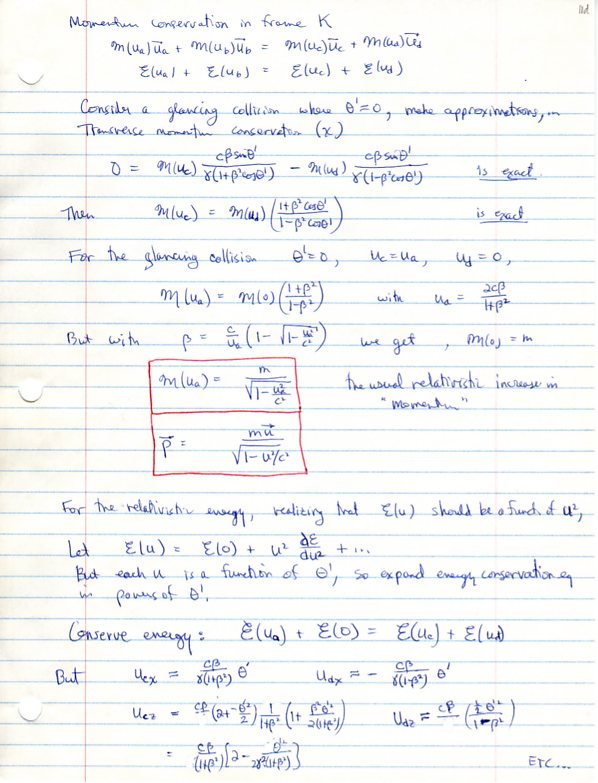 11d
Momentum conservation in frame K
m(ua)u⃗a + m(ub)u⃗b = m(uc)u⃗c + m(ud)u⃗d
ℰ(ua) + ℰ(ub) = ℰ(uc) + ℰ(ud)
Consider a glancing collision where θ'≈0, make approximations, ...
Transverse momentum conservation (x)
0 = m(uc) cβ sinθ' / γ(1+β²cosθ') − m(ud) cβ sinθ' / γ(1−β²cosθ') is exact
Then m(uc) = m(ud) ( (1+β²cosθ') / (1−β²cosθ') ) is exact
For the glancing collision θ'=0, uc=ua, ud=0,
m(ua) = m(0) ( (1+β²) / (1−β²) ) with ua = 2cβ / (1+β²)
But with β = c/ua (1 − √(1−ua²/c²)) we get, m(0) = m
m(ua) = m / √(1−ua²/c²) the usual relativistic increase in
"momentum"
p⃗ = mu⃗ / √(1−u²/c²)
For the relativistic energy, realizing that ℰ(u) should be a funct. of u²,
Let ℰ(u) = ℰ(0) + u² dℰ/du² + ...
But each u is a function of θ', so expand energy conservation eq
in powers of θ'.
Conserve energy: ℰ(ua) + ℰ(0) = ℰ(uc) + ℰ(ud)
But ucx = cβ / γ(1+β²) θ' udx = − cβ / γ(1−β²) θ'
ETC...